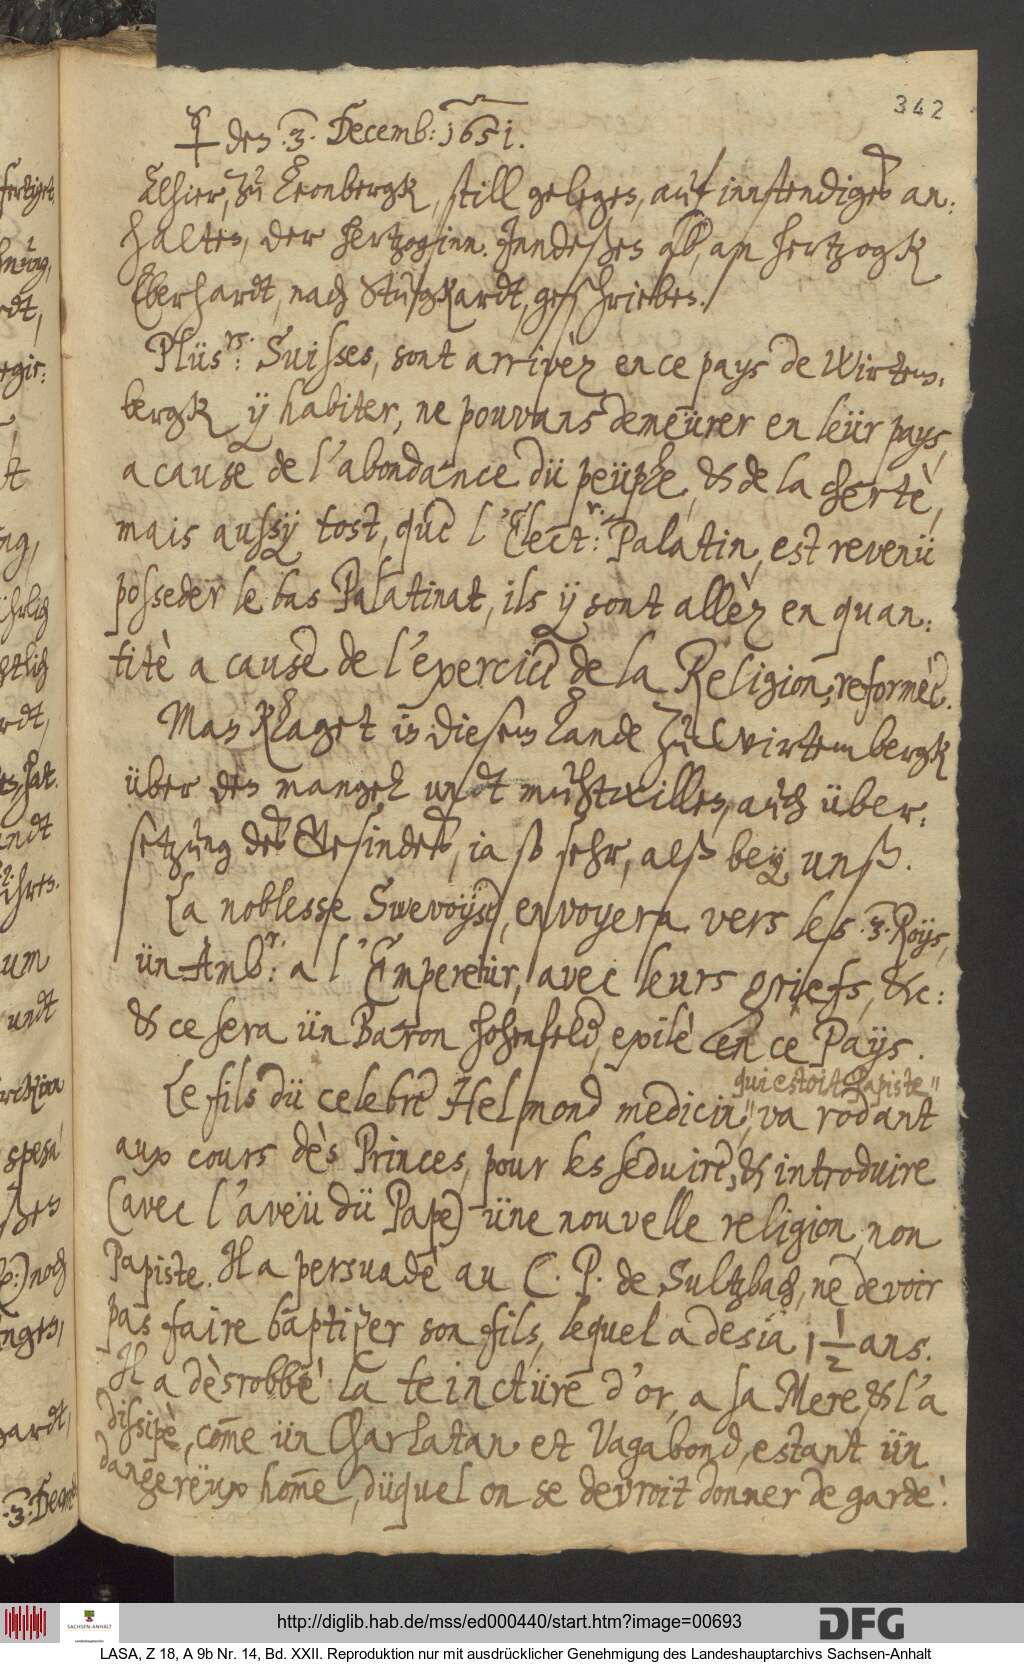 342
☿ den .3. Decemb: 1651.
Alhier, zu Leonbergk, still gelegen, auf instendiges an:
halten, der Hertzoginn. Inndeßen ab, an Hertzogk
Eberhardt, nach Stugkardt, geschrieben./
Plüsrs: Suisses, sont arrivèz en ce pays de Wirtem:
bergk ÿ habiter, ne pouvans demeürer en leür pays,
a cause de l'abondance dü peüple, & de la chertè,
mais aussÿ tost, que l'Elect:r: Palatin, est revenü
posseder le bas Palatinat, ils ÿ sont allèz en quan:
titè a cause de l'exercice de la Religion, reformèe.
Man klaget in diesem Lande zu Wirtembergk
über den mangel undt muhtwillen, auch über:
setzung des Gesindes, ia so sehr, alß bey unß.
La noblesse Swevoÿse, envoyera vers les .3. Roÿs,
ün Amb:r: a l'Empereür, avec leurs griefs, &c:
& ce sera ün Baron Hohenfeld, exilè en ce Pays.
qui estoit Papiste"
Le fils dü celebre Helmond medicin," va rodant
aux cours dès Princes, pour les seduire, & introduire
(avec l'aveü dü Pape) üne nouvelle religion, non
Papiste. Il a persuadè au C. P. de Sultzbach, ne devoir
pas faire baptiser son fils, lequel a desia 1½ ans.
Il a dèsrobbè la teinctüre d'or, a sa Mere, & l'a
dissipè, com̄e ün Charlatan et Vagabond, estant ün
dangereüx hom̄e, düquel on se devroit donner de garde.
http://diglib.hab.de/mss/ed000440/start.htm?image=00693
DFG
SACHSEN-ANHALT
LASA, Z 18, A 9b Nr. 14, Bd. XXII. Reproduktion nur mit ausdrücklicher Genehmigung des Landeshauptarchivs Sachsen-Anhalt